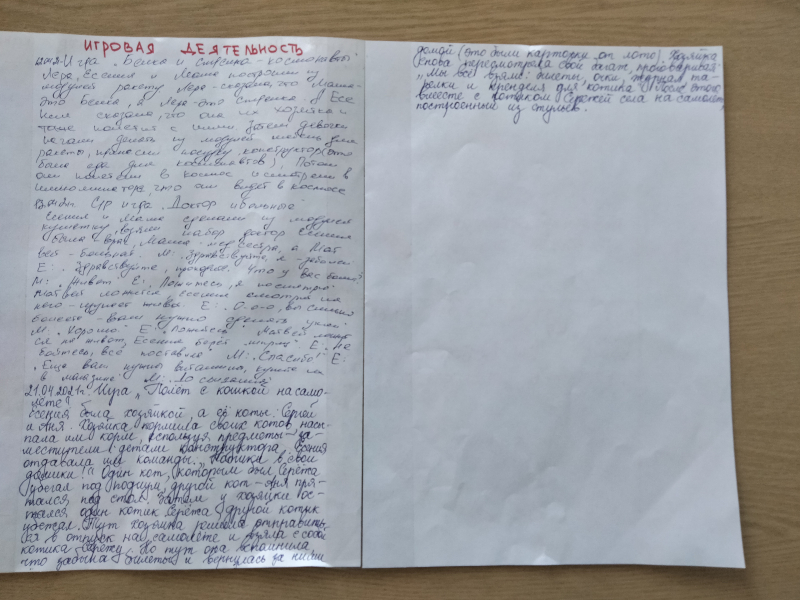 ИГРОВАЯ ДЕЯТЕЛЬНОСТЬ
Игра "Белка и Стрелка - космонавты"
Лера, Есения и Маша построили из
модулей ракету. Лера сказала, что Маша-
это Белка, а Лера - это Стрелка. А Есе
ния сказала, что она их хозяйка и
тоже полетит с ними. Затем девочки
начали делать из модулей
ракеты, принесли посуду, конструктор (это
была еда для космонавтов). Потом
они полетели в космос и смотрели в
иллюминатор, что они видят в космосе
С/р игра "Доктор и больные"
Есения и Маша сделали из модулей
кушетку, взяли набор доктор. Есения
была - врач, Маша - медсестра, а Мат
вей - больной. М: "Здравствуйте, я - заболел"
Е: "Здравствуйте, проходите. Что у вас болит?"
М: "Живот" Е: "Ложитесь, я посмотрю"
Матвей ложится, Есения смотрит на
него - щупает живот. Е: "О-о-о, вы сильно
болеете - вам нужно сделать укол"
М: "Хорошо" Е: "Ложитесь" Матвей ложит
ся на живот, Есения берёт шприц Е: "Не
бойтесь, всё поставила" М: "Спасибо!" Е:
"Ещё вам нужны витамины, купите их
в магазине" М: "До свидания"
21.04.2021г. Игра "Полет с кошкой на само-
лете"
Есения была хозяйкой, а её коты: Сергей
и Аня. Хозяйка кормила своих котов, насы-
пала им корм, используя предметы - за-
местители (детали конструктора). Есения
отдавала им команды: "Котики в свои
домики!" Один кот, которым был Серёжа
убегал под подиум, другой кот - Аня пря-
талась под стол. Затем у хозяйки ос-
тался один котик Серёжа, другой котик
убежал. Тут хозяйка решила отправить
ся в отпуск на самолете и взяла с собой
котика Серёжу. Но тут она вспомнила
что забыла билеты и вернулась за ними
домой (это были карточки от лото). Хозяйка
снова пересмотрела свой багаж, проговаривая:
"Мы всё взяли: билеты, очки, журнал, та-
релки и крендели для котика". После этого
вместе с котиком Серёжей села на самолет,
построенный из стульев.